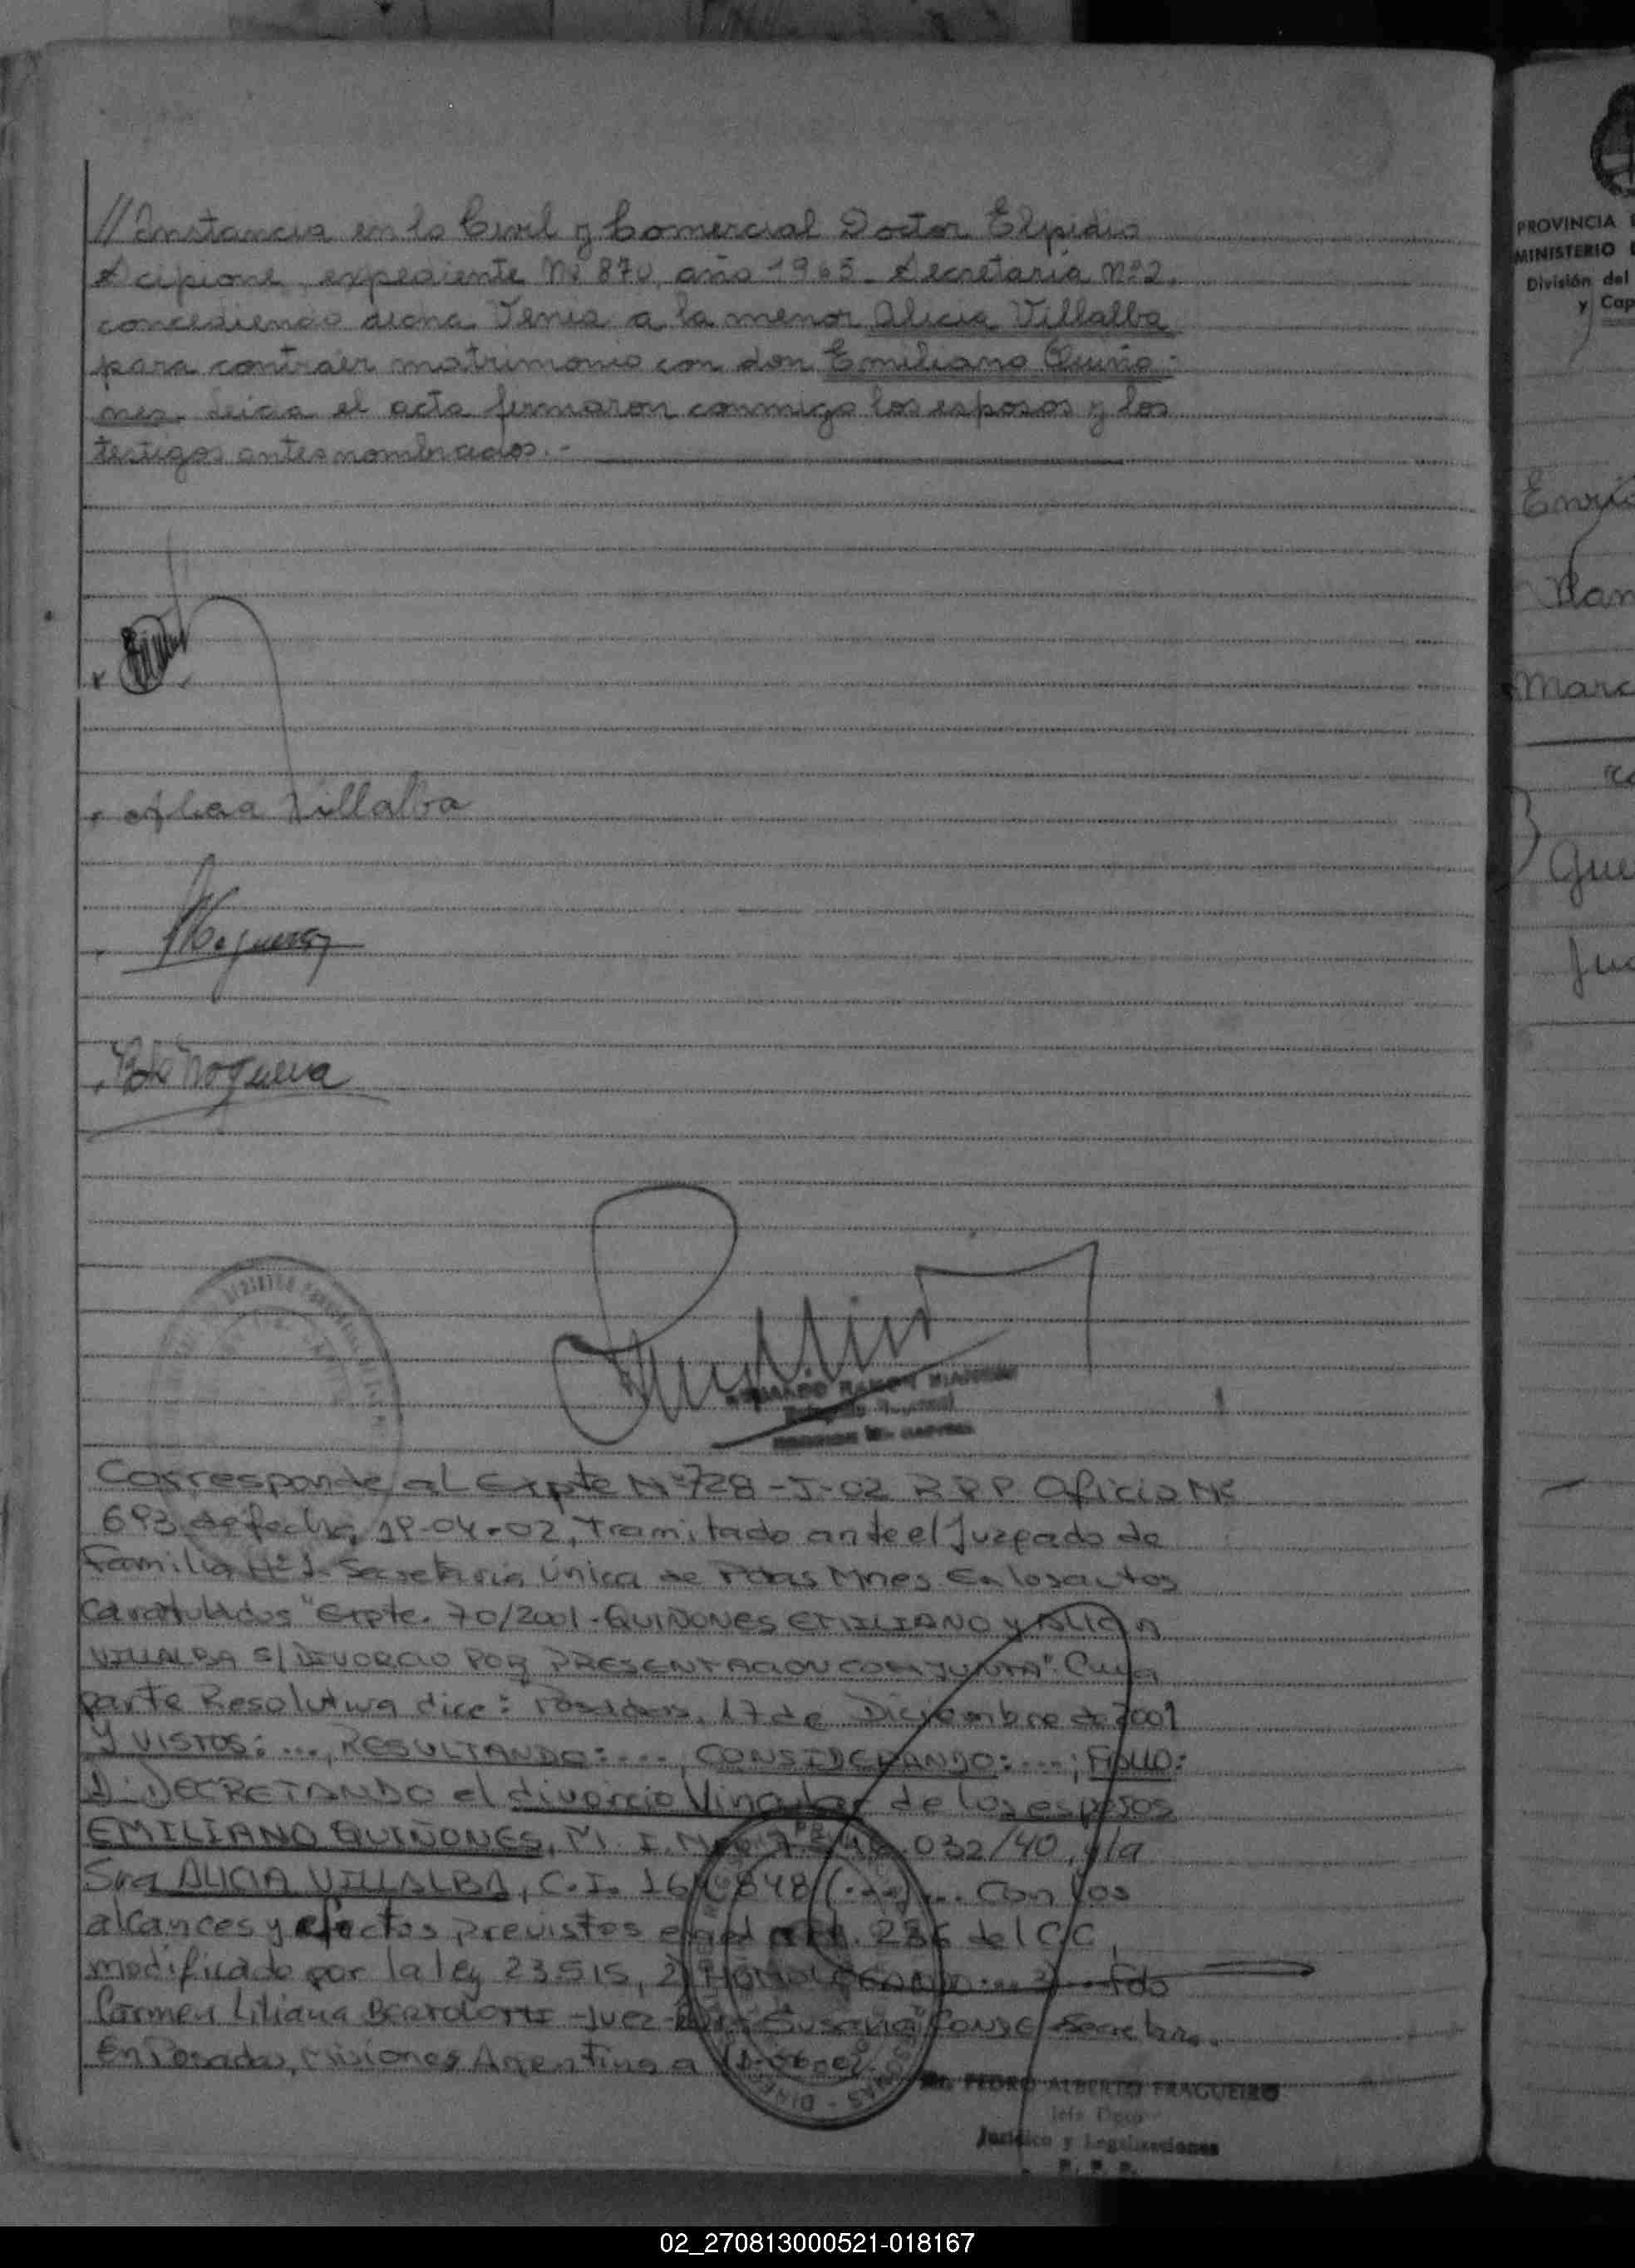 // Instancia en lo Civil y Comercial Doctor Elpidio
Scipione, expediente Nº 870, año 1965 - Secretaría Nº 2,
concediendo dicha Venia a la menor Alicia Villalba
para contraer matrimonio con don Emiliano Quiño-
nes. Leída el acta firmaron conmigo los esposos y los
testigos antes nombrados.-
Alicia Villalba
Noguera
Noguera
Corresponde al Expte Nº 728-I-02 RPP Oficio Nº
693 de fecha, 19-04-02, Tramitado ante el Juzgado de
Familia Nº 1- Secretaria Única de Pdas Mnes En los autos
Caratulados "Expte. 70/2001-QUIÑONES EMILIANO y ALICIA
VILLALBA S/DIVORCIO POR PRESENTACION CONJUNTA". Cuya
parte Resolutiva dice: Posadas, 17 de Diciembre de 2001
Y VISTOS: ..., RESULTANDO: ..., CONSIDERANDO: ...; FALLO:
1) DECRETANDO el divorcio Vincular de los esposos
EMILIANO QUIÑONES, M. I. Nº 032/40, y la
Sra ALICIA VILLALBA, C.I. 848 (...)... Con los
alcances y efectos previstos en el art. del CC,
modificado por la ley 23.515, 2) HOMOLOGANDO... 3)... Fdo
Carmen Liliana -Juez- Susana Secretaria.
En Posadas, Misiones Argentina a
PEDRO ALBERTO FRAGUEIRO
Jefe Dpto
Jurídico y Legalizaciones
R. P. P.
PROVINCIA
MINISTERIO
División del
y Cap
02_270813000521-018167